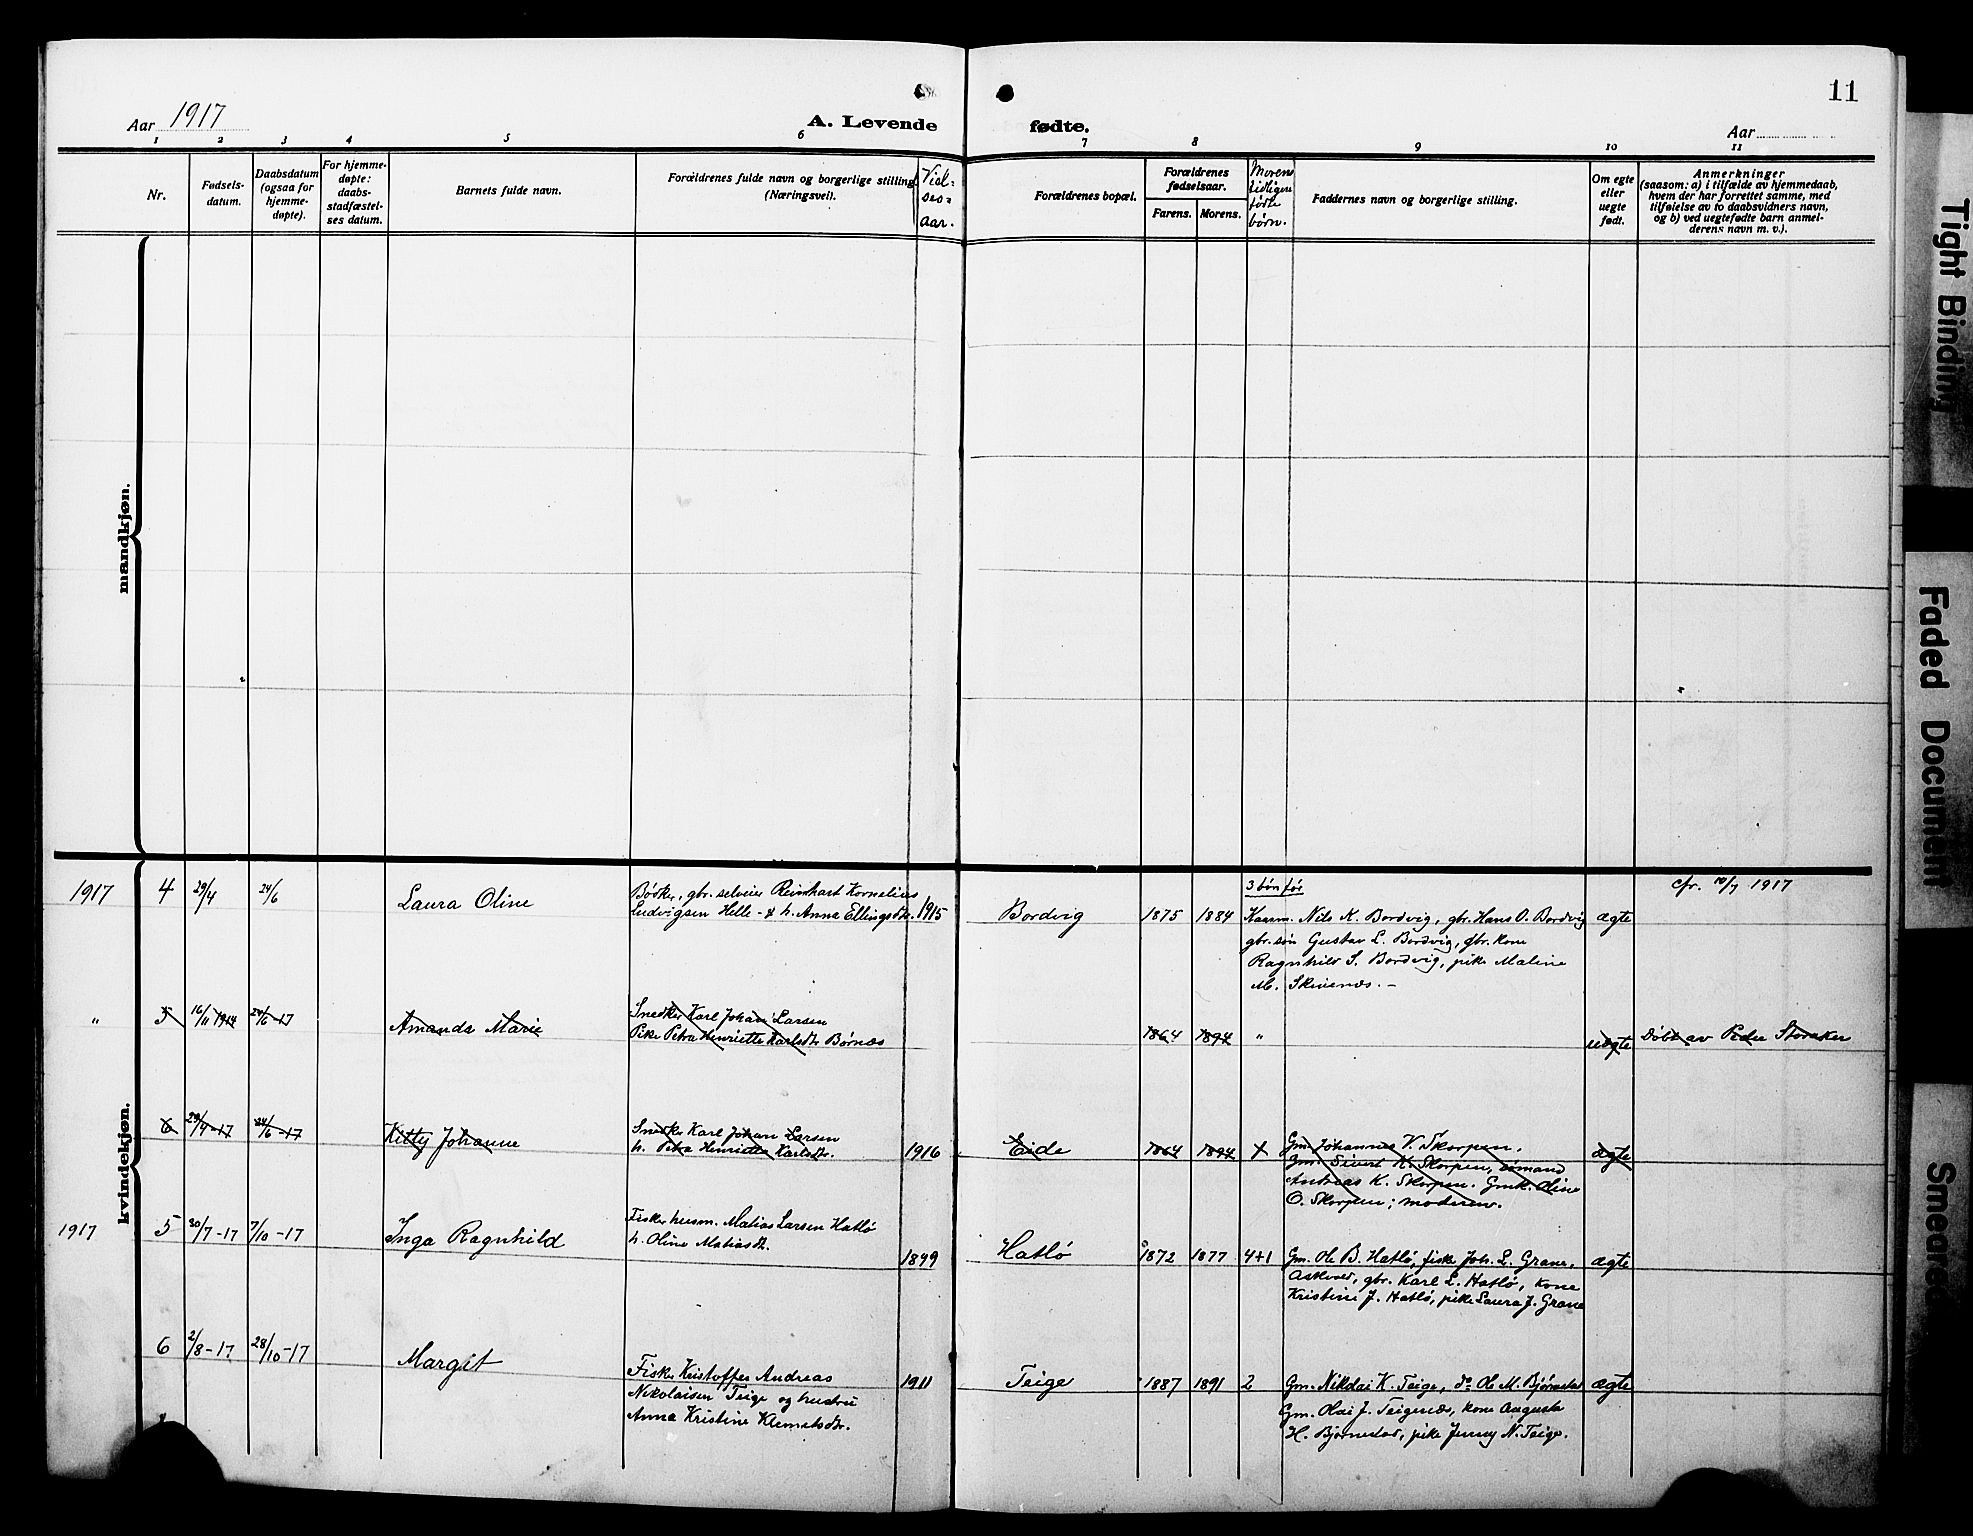 11
Aar 1917
A. Levende fødte.
Aar
1 2 3 4 5 6 7 8 9 10 11
Nr.
Fødsels-
datum.
Daabsdatum
(ogsaa for
hjemme-
døpte).
For hjemme-
døpte:
daabs-
stadfæstel-
ses datum.
Barnets fulde navn.
Forældrenes fulde navn og borgerlige stilling
(Næringsvei).
Viel-
ses-
aar.
Forældrenes bopæl.
Forældrenes
fødselsaar.
Farens. Morens.
Morens
tidligere
fødte
børn.
Faddernes navn og borgerlige stilling.
Om egte
eller
uegte
født.
Anmerkninger
(saasom: a) i tilfælde av hjemmedaab,
hvem der har forrettet samme, med
tilføielse av to daabsvidners navn,
og b) ved uegtefødte barn anmel-
derens navn m. v.).
mandkjøn.
kvindekjøn.
1917 4 29/4 24/6 Laura Oline
Bødker, gbr. selveier Reinhart Kornelius
Ludvigsen Helle - & h. Anna Ellingsdtr. 1915
Bordvig 1875 1884
3 børn før
Kaarm. Nils K. Bordvig, gbr. Hans O. Bordvig
gbr. søn Gustav L. Bordvig, gbr. kone
Ragnhild S. Bordvig, pike Maline
M. Skivenes. -
ægte
cfr. 10/7 1917
" 5 16/11 1914 24/6-17 Amanda Marie
Snedker Karl Johan Larsen
Pike Petra Henriette Karlsdtr Børnæs
1864 1894 "
uægte
Døbt av Peder Storaker
6 29/4-17 24/6-17 Kitty Johanne
Snedker Karl Johan Larsen
h. Petra Henriette Karlsdtr. 1916
Eide 1864 1894
Gm. Johannes V. Skorpen.
Gm. Sivert K. Skorpen, sømand
Andreas K. Skorpen. Gmk. Oline
O. Skorpen; moderen.
ægte
1917 5 30/7-17 7/10-17 Inga Ragnhild
Fisker husm. Matias Larsen Hatlø
h. Oline Matiasdtr. 1899
Hatlø 1872 1877 4+1
Gm. Ole B. Hatlø, fisker Joh. L. Grane,
Askvoll, gbr. Karl L. Hatlø, kone
Kristine J. Hatlø, pike Laura J. Grane
ægte
6 2/8-17 28/10-17 Margit
Fisker Kristoffer Andreas
Nikolaisen Teige og hustru
Anna Kristine Klemetsdtr. 1911
Teige 1887 1891 2
Gm. Nikolai K. Teige, do Ole M. Bjørnestad
Gm. Olai J. Teigenæs, kone Augusta
H. Bjørnestad, pike Jenny N. Teige.
ægte
Tight Binding
Faded Document
Smeared